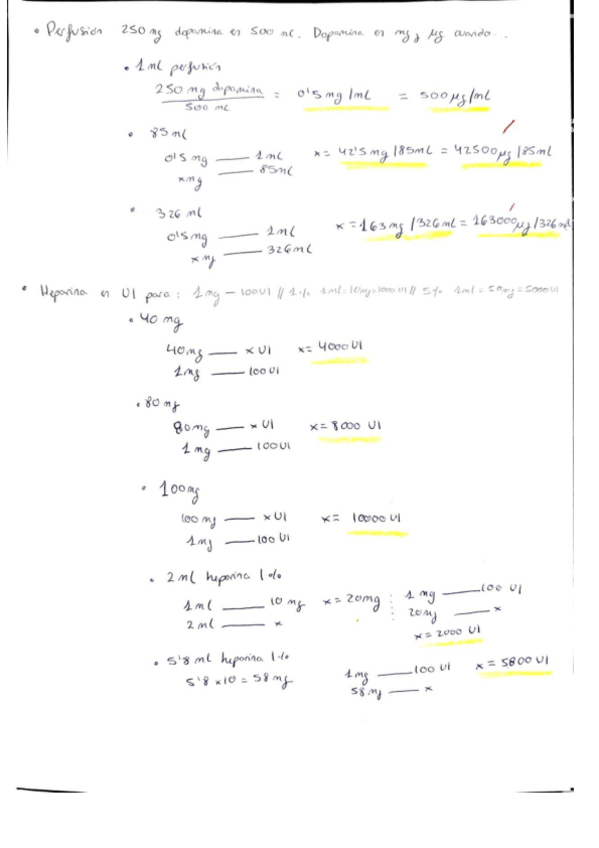 • Perfusión 250 mg dopamina en 500 ml. Dopamina en mg y µg cuando...
• 1 ml perfusión
250 mg dopamina / 500 ml = 0'5 mg/ml = 500 µg/ml
• 85 ml
0'5 mg — 1 ml x = 42'5 mg/85ml = 42500 µg/85ml
x mg — 85 ml
• 326 ml
0'5 mg — 1 ml x = 163 mg/326 ml = 163000 µg/326 ml
x mg — 326 ml
• Heparina en UI para: 1 mg - 100 UI // 1% 1ml = 10mg = 1000 UI // 5% 1ml = 50mg = 5000 UI
• 40 mg
40 mg — x UI x = 4000 UI
1 mg — 100 UI
• 80 mg
80 mg — x UI x = 8000 UI
1 mg — 100 UI
• 100 mg
100 mg — x UI x = 10000 UI
1 mg — 100 UI
• 2 ml heparina 1%
1 ml — 10 mg x = 20mg 1 mg — 100 UI
2 ml — x 20 mg — x
x = 2000 UI
• 5'8 ml heparina 1% 1 mg — 100 UI x = 5800 UI
5'8 x 10 = 58 mg 58 mg — x